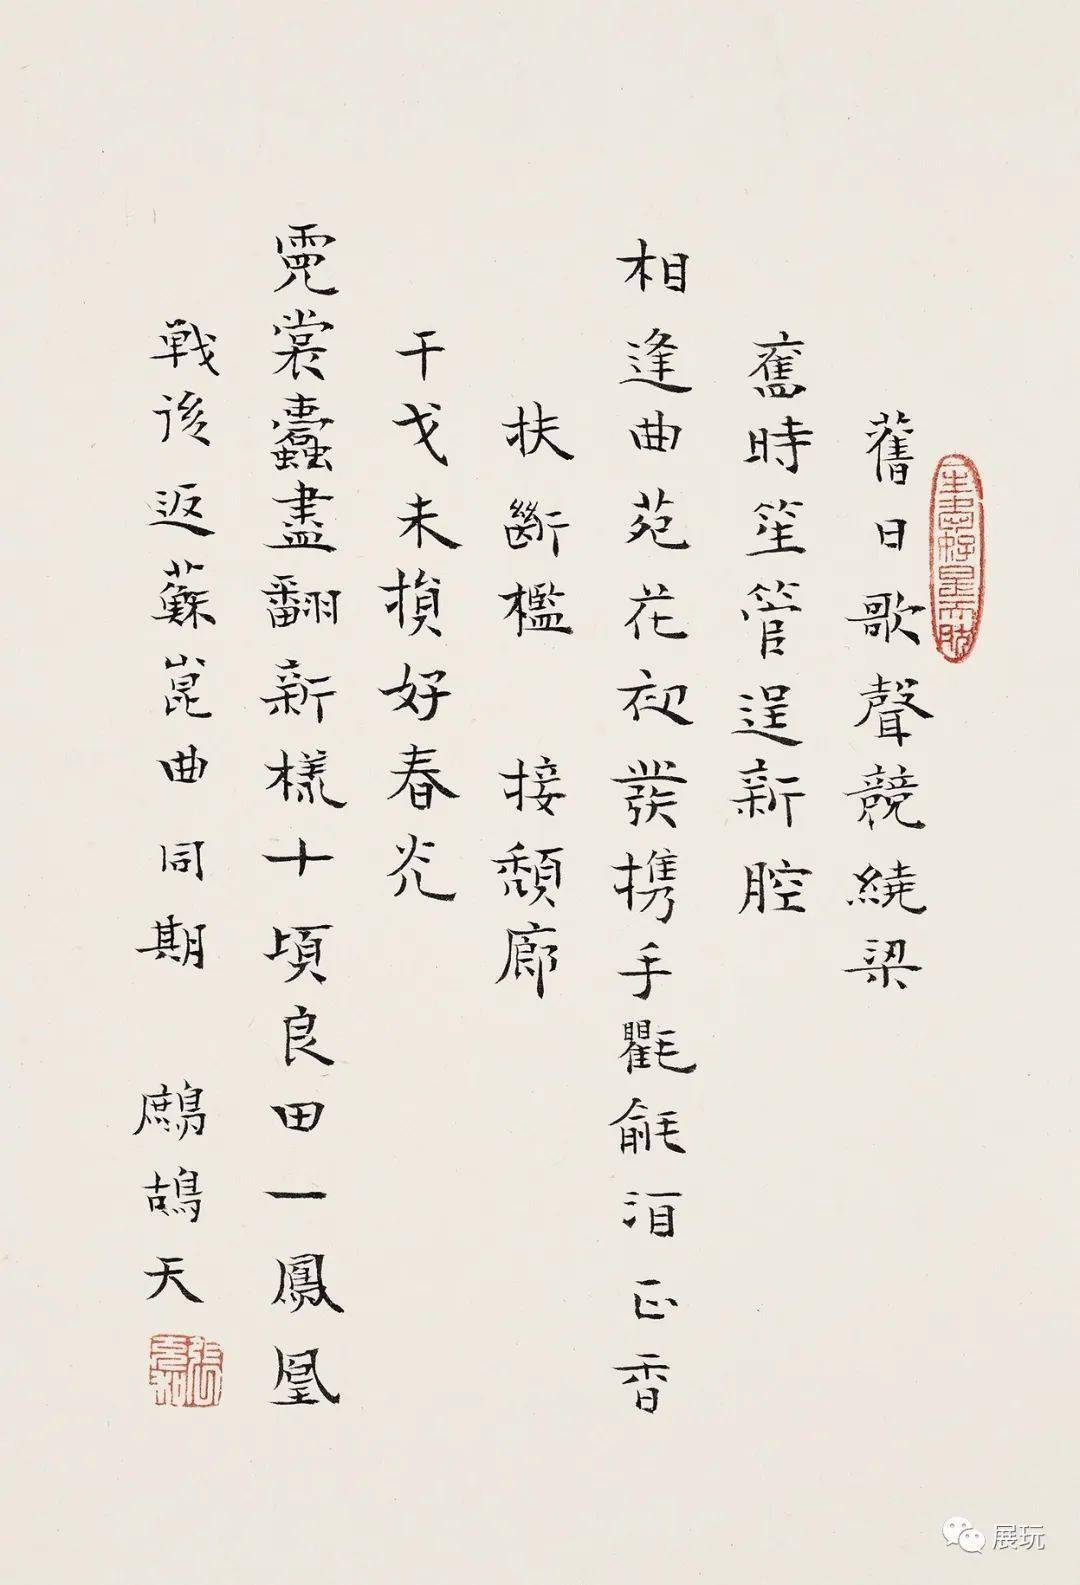 一生愛好是天然
舊日歌聲競繞梁
舊時笙管逞新腔
相逢曲苑花初發携手氍毹酒正香
扶斷檻 接頹廊
干戈未損好春光
霓裳蠹盡翻新樣十頃良田一鳳凰
戰後返蘇崑曲同期 鷓鴣天
張充和
展玩